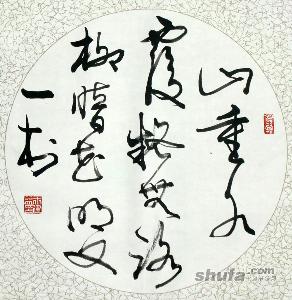 山重水
覆疑無路
柳暗花明又
一村
shufa.com